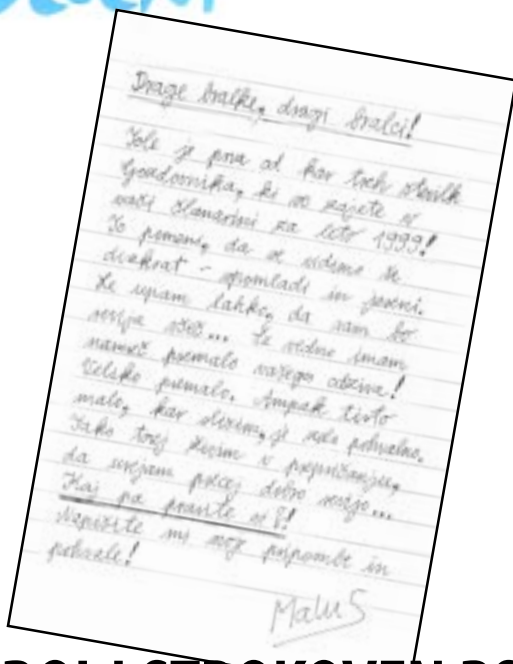 Drage bralke, dragi bralci!
Tole je prva od kar treh številk
Gozdovnika, ki so zajete v
vaši članarini za leto 1999!
To pomeni, da se vidimo še
dvakrat - spomladi in jeseni.
Le upam lahko, da vam bo
revija všeč... Še vedno imam
namreč premalo vašega odziva!
Veliko premalo. Ampak tisto
malo, kar slišim, je zelo pohvalno.
Tako torej živim v prepričanju,
da urejam precej dobro revijo...
Kaj pa pravite vi?!
Napišite mi svoje pripombe in
pohvale!